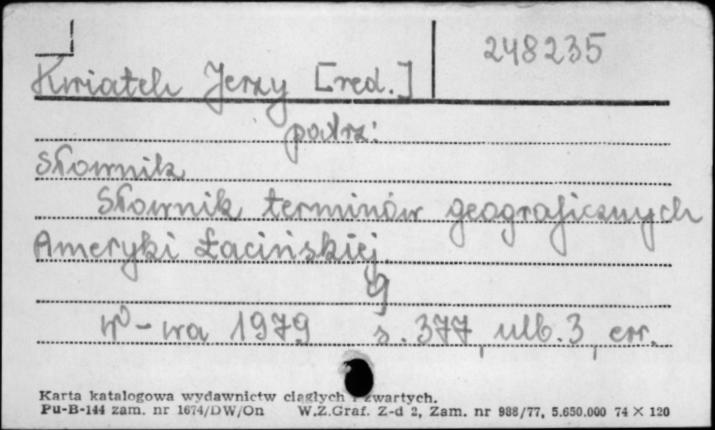 248235
Kwiatek Jerzy [red.]
patrz:
Słownik
Słownik terminów geograficznych
Ameryki Łacińskiej.
W-wa 1979 s. 377, ulb. 3, err.
Karta katalogowa wydawnictw ciągłych i zwartych.
Pu-B-144 zam. nr 1674/DW/On W.Z.Graf. Z-d 2, Zam. nr 988/77, 5.650.000 74 × 120